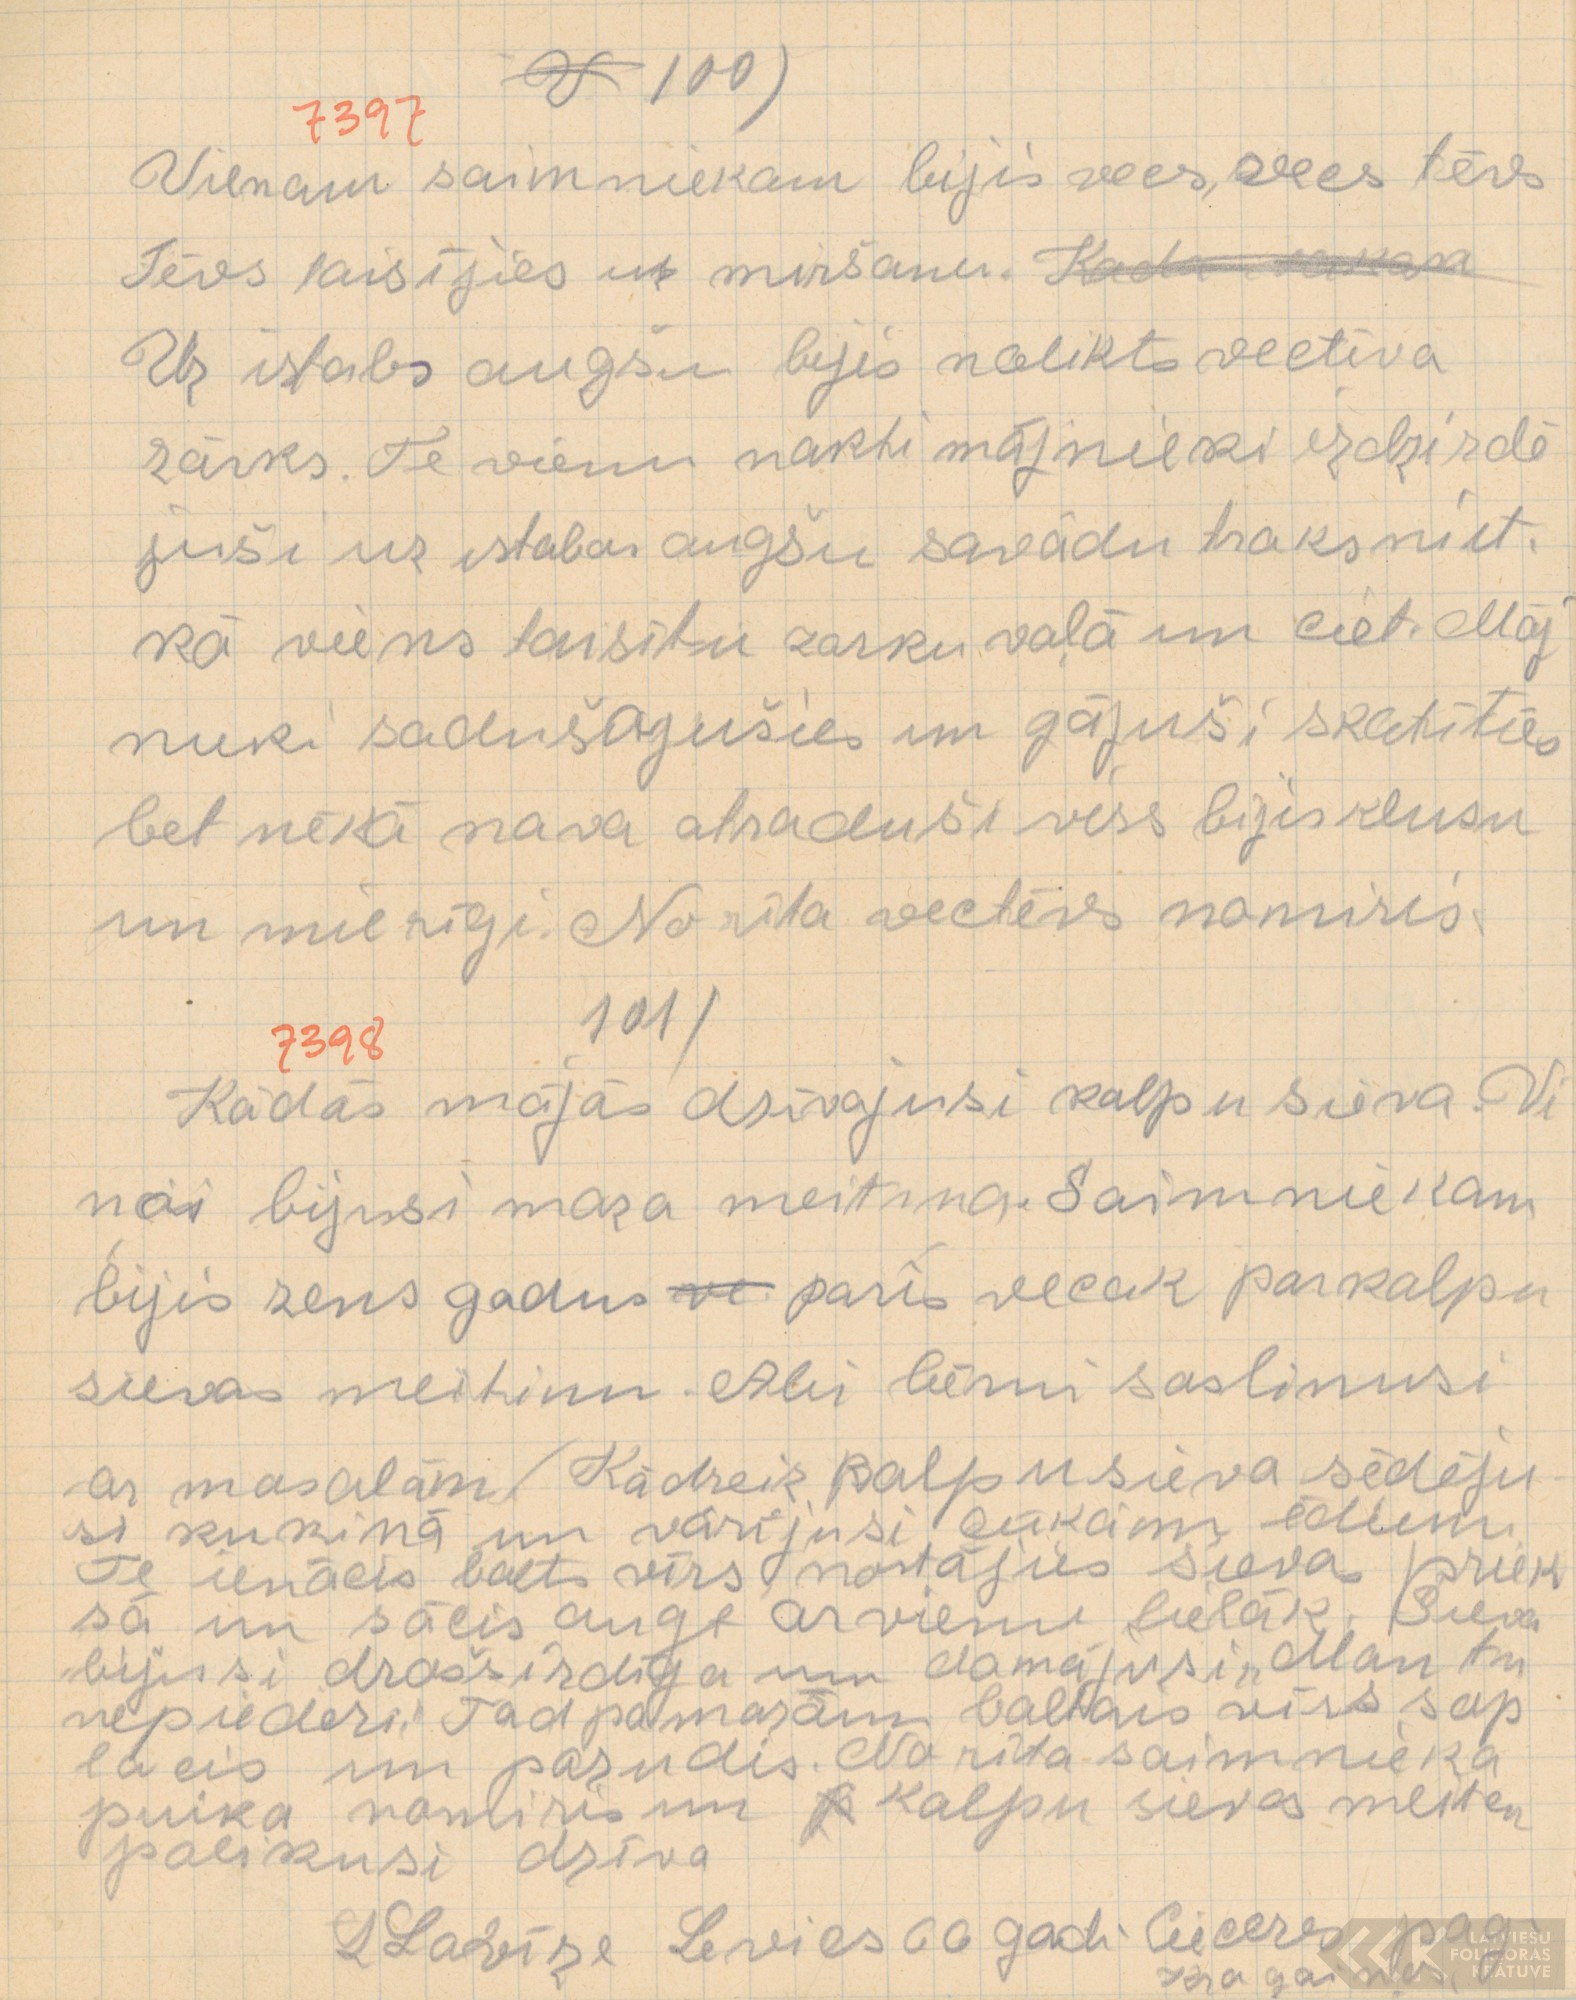 100)
7397
Vienam saimniekam bijis vecs, vecs tēvs
Tēvs taisījies uz miršanu.
Uz istabs augšu bijis nolikts vectēva
zārks. Te vienu nakti mājnieki izdzirdē
juši uz istabas augšu savādu troksni it.
kā viens taisītu zarku vaļā un ciet. Māj
nieki sadušāgušies un gājuši skatīties
bet nekā nava atraduši viss bijis klusu
un mierīgi. No rīta vectēvs nomiris.
101/
7398
Kādās mājās dzīvajusi kalpu sieva. Vi
ņai bijusi maza meitiņa. Saimniekam
bijis zens gadus pāris vecak par kalpu
sievas meitiņu. Abi bērni saslimusi
ar masalām/ Kādreiz kalpu sieva sēdēju
si kukiņā un vārijusi cūkām ēdienu
Te ienācis balts vīrs, nostājies sievas priek
sā un sācis augt arvienu lielāk. Sieva
bijusi drošsirdīga un domājusi, "Man tu
nepiederi." Tad pamazām baltais vīrs sap
lacis un pazudis. No rīta saimnieka
puika nomiris un kalpu sievas meiten
palikusi dzīva
Lavīze Levics 66 gadi Cieceres pag.
LATVIEŠU
FOLKLORAS
KRĀTUVE